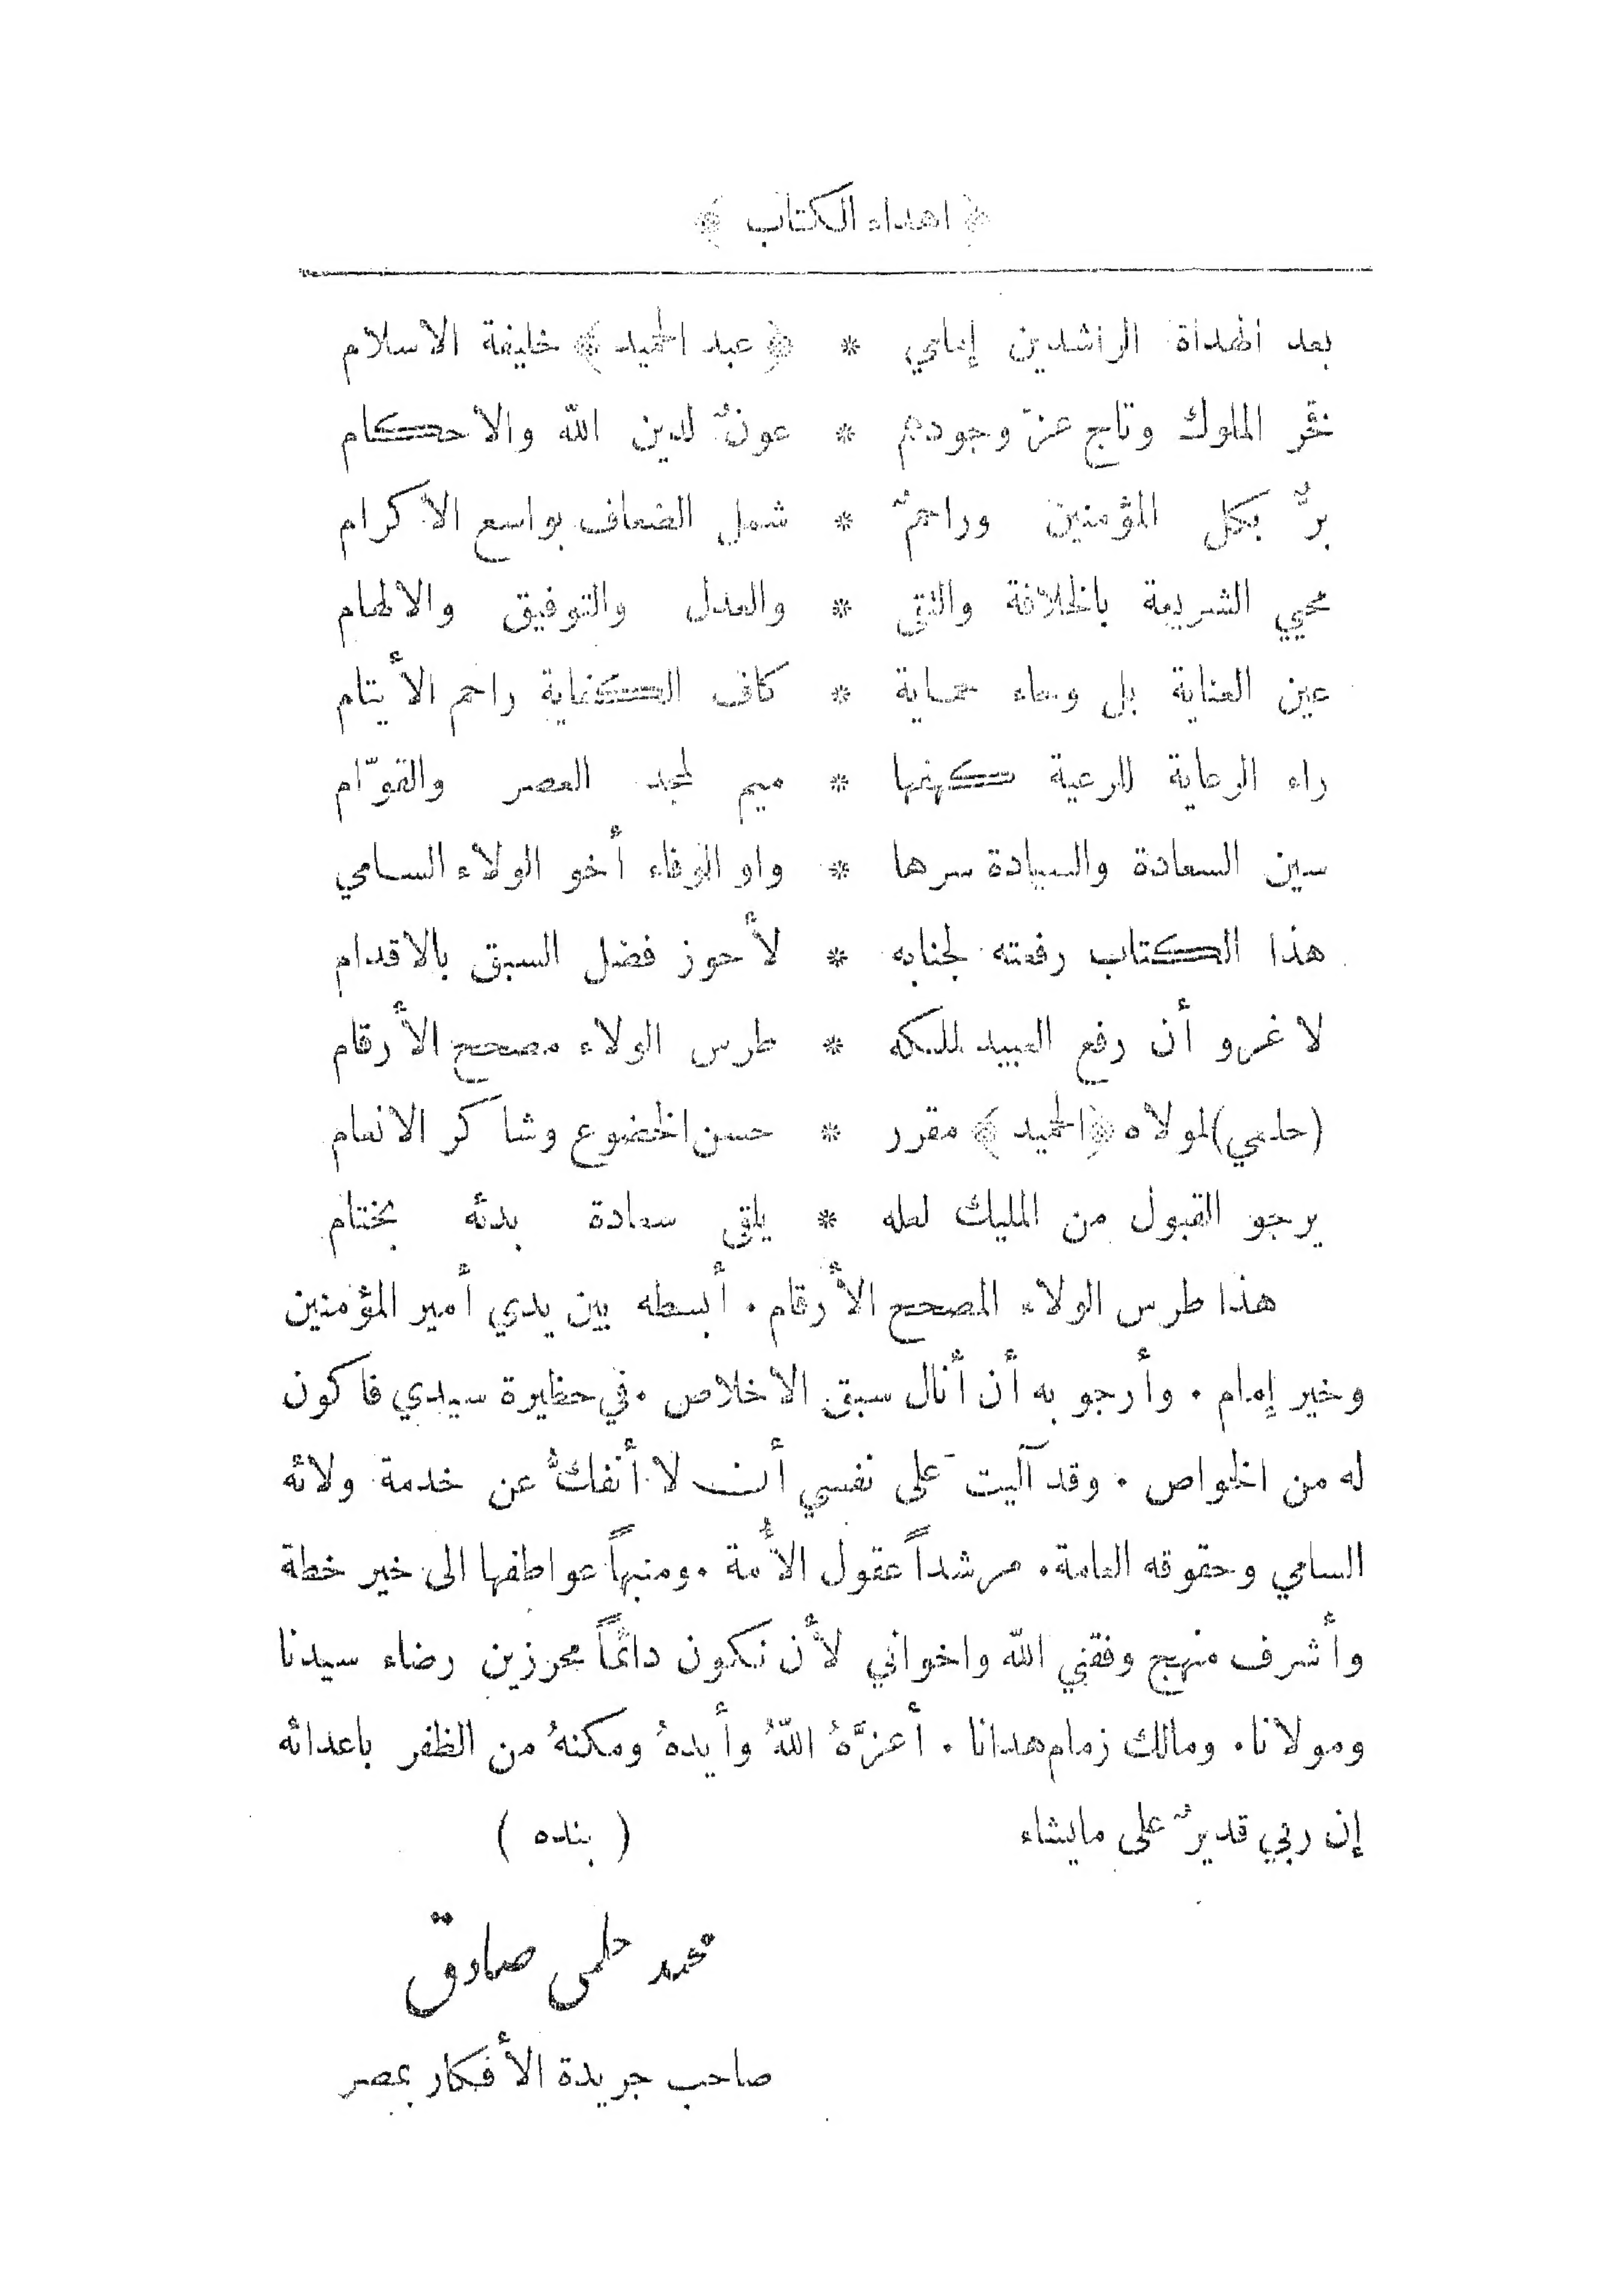 ﴿ اهداء الكتاب ﴾
بعد الهداة الراشدين إمامي * ﴿ عبد الحميد ﴾ خليفة الاسلام
فخر الملوك وتاج عزّ وجودهم * عونٌ لدين اللّه والاحكام
برٌّ بكل المؤمنين وراحمٌ * شمل الضعاف بواسع الاكرام
محيي الشريعة بالخلافة والتقى * والعدل والتوفيق والالهام
عين العناية بل وحاء حماية * كاف الكفاية راحم الأيتام
راء الرعاية للرعية كهفها * ميم لمجد العصر والقوّام
سين السعادة والسيادة سرها * واو الوفاء أخو الولاء السامي
هذا الكتاب رفعته لجنابه * لأحوز فضل السبق بالاقدام
لا غرو أن رفع العبيد لملكه * طرس الولاء مصحح الأرقام
(حلمي) لمولاه ﴿ الحميد ﴾ مقرر * حسن الخضوع وشاكر الانعام
يرجو القبول من المليك لعله * يلقى سعادة بدئه بختام
هذا طرس الولاء المصحح الأرقام . أبسطه بين يدي أمير المؤمنين
وخير إمام . وأرجو به أن أنال سبق الاخلاص . في حظيرة سيدي فاكون
له من الخواص . وقد آليت على نفسي أن لا أنفكُّ عن خدمة ولائه
السامي وحقوقه العامة . مرشداً عقول الأُمة . ومنبهاً عواطفها الى خير خطة
وأشرف منهج وفقني اللّه واخواني لأن نكون دائماً محرزين رضاء سيدنا
ومولانا . ومالك زمام هدانا . أعزَّهُ اللّهُ وأيدهُ ومكنهُ من الظفر باعدائه
إن ربي قديرٌ على مايشاء ( بنده )
محمد حلمى صادق
صاحب جريدة الأفكار بمصر